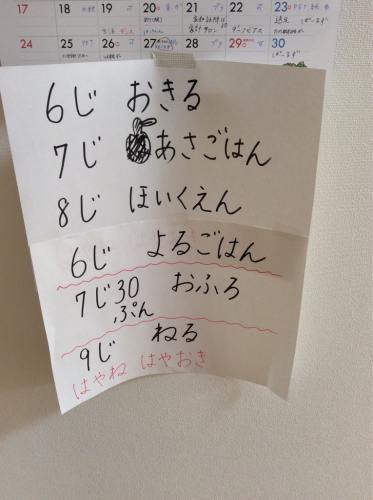 17 18 19 20 21 22 23
24 25 26 27 28 29 30
6じ おきる
7じ あさごはん
8じ ほいくえん
6じ よるごはん
7じ30ぷん おふろ
9じ ねる
はやね はやおき